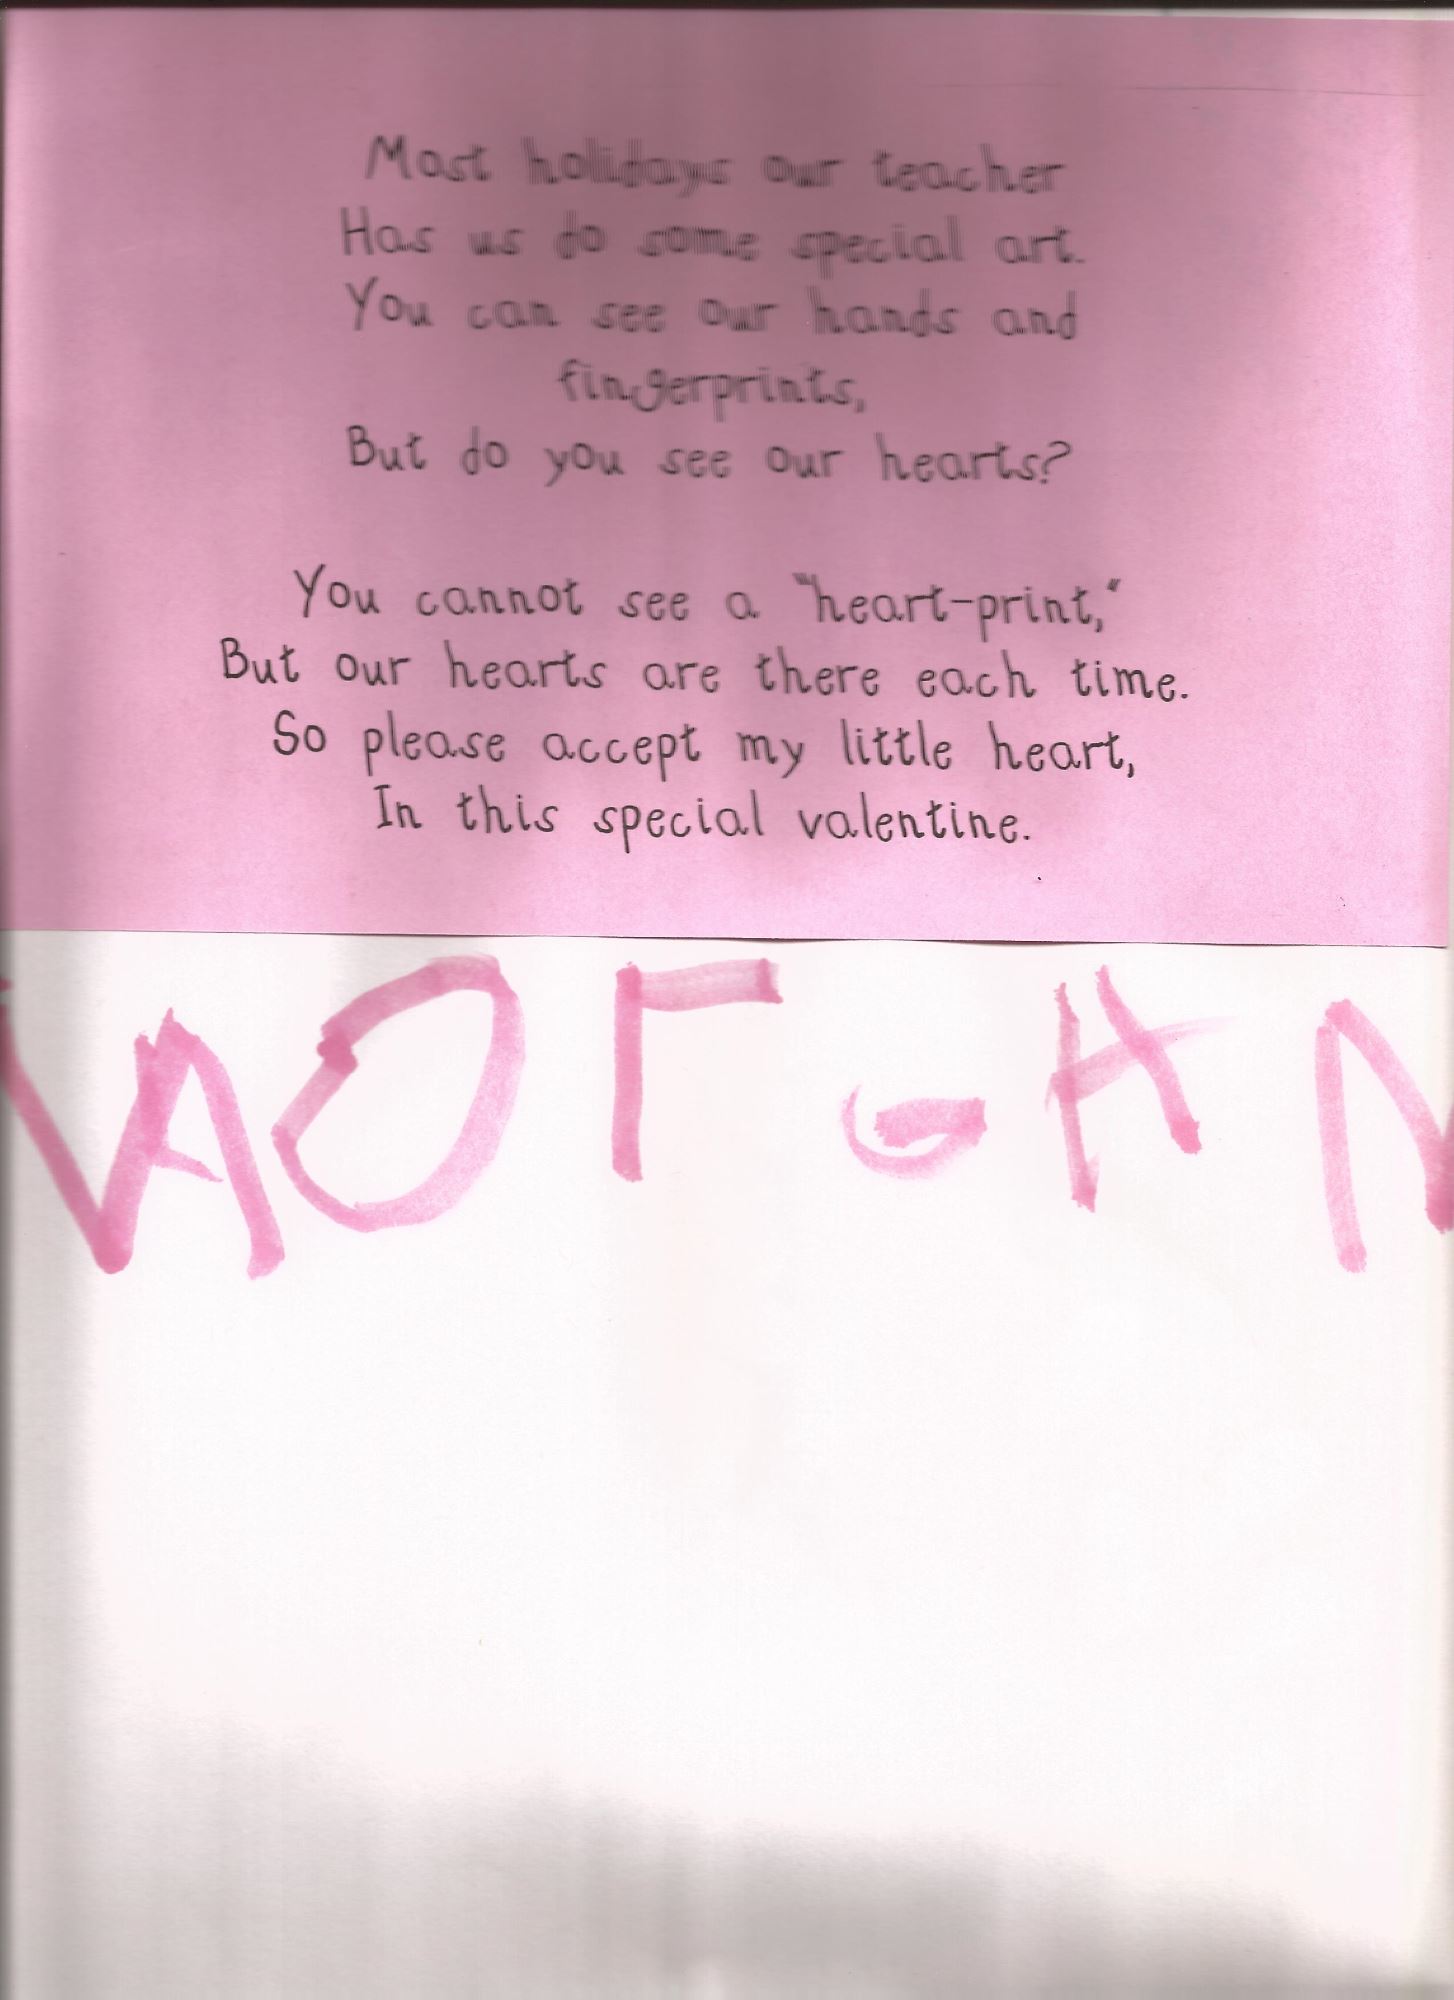 Most holidays our teacher
Has us do some special art.
You can see our hands and
fingerprints,
But do you see our hearts?
You cannot see a "heart-print,"
But our hearts are there each time.
So please accept my little heart,
In this special valentine.